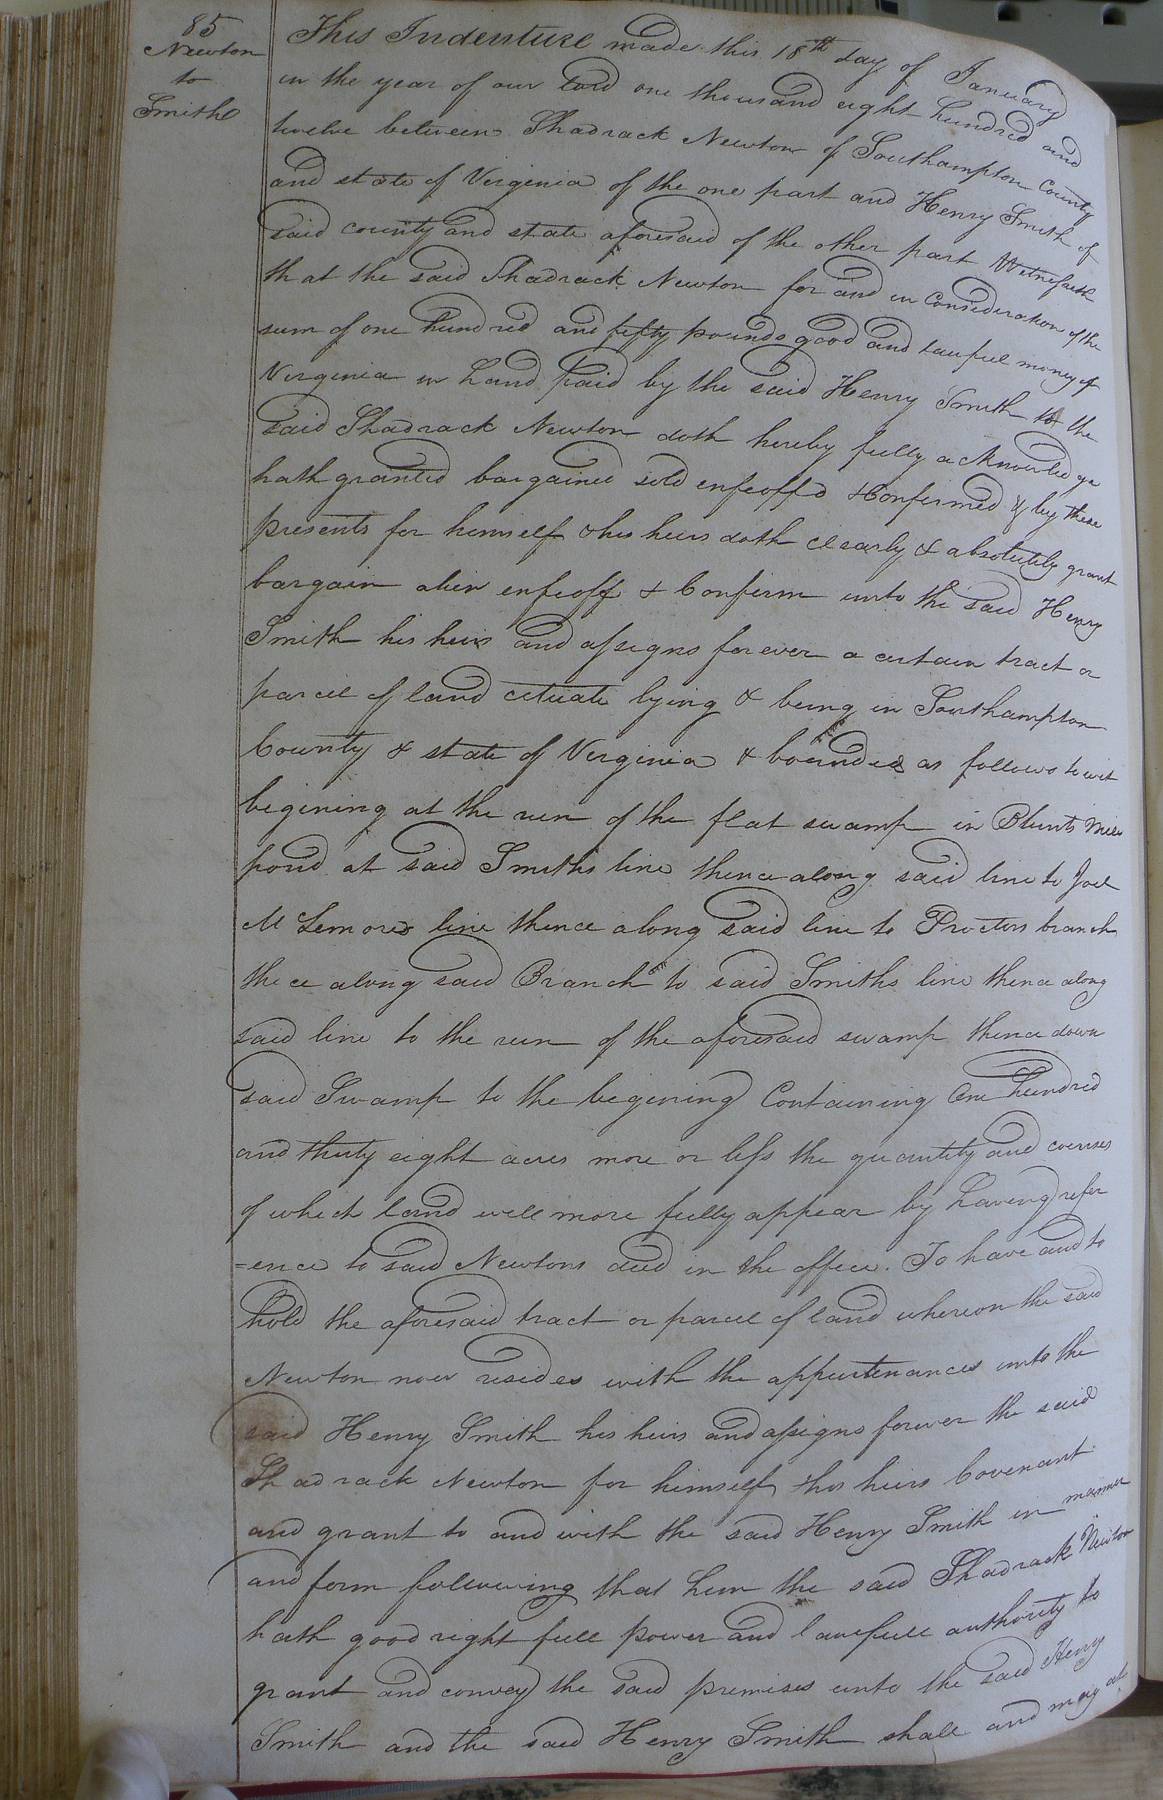 85
Newton
to
Smith
This Indenture made this 18th day of January
in the year of our Lord one thousand eight hundred and
twelve between Shadrack Newton of Southampton County
and state of Verginia of the one part and Henry Smith of
said county and state aforesaid of the other part Witnesseth
that the said Shadrack Newton for and in Consideration of the
sum of one hundred and fifty pounds good and lawfull money of
Verginia in hand paid by the said Henry Smith to the
said Shadrack Newton doth hereby fully acknowledge
hath granted bargained sold enfeoffd & Confirmed & by these
presents for himself & his heirs doth clearly & absolutely grant
bargain alien enfeoff & Confirm unto the said Henry
Smith his heirs and assigns forever a certain tract or
parcel of land cituate lying & being in Southampton
County & state of Verginia & bounded as follows to wit
begining at the run of the flat swamp in Blunts Mill
pond at said Smiths line thence along said line to Joel
McLemores line thence along said line to Proctors branch
thece along said Branch to said Smiths line thence along
said line to the run of the aforesaid swamp thence down
said Swamp to the begining Containing One hundred
and thirty eight acres more or less the quantity and courses
of which land will more fully appear by having refer
=ence to said Newtons deed in the office. To have and to
hold the aforesaid tract or parcel of land whereon the said
Newton now resides with the appurtenances unto the
said Henry Smith his heirs and assigns forever the said
Shadrack Newton for himself & his heirs Covenant
and grant to and with the said Henry Smith in manner
and form following that him the said Shadrack Newton
hath good right full power and lawfull authority to
grant and convey the said premises unto the said Henry
Smith and the said Henry Smith shall and may at